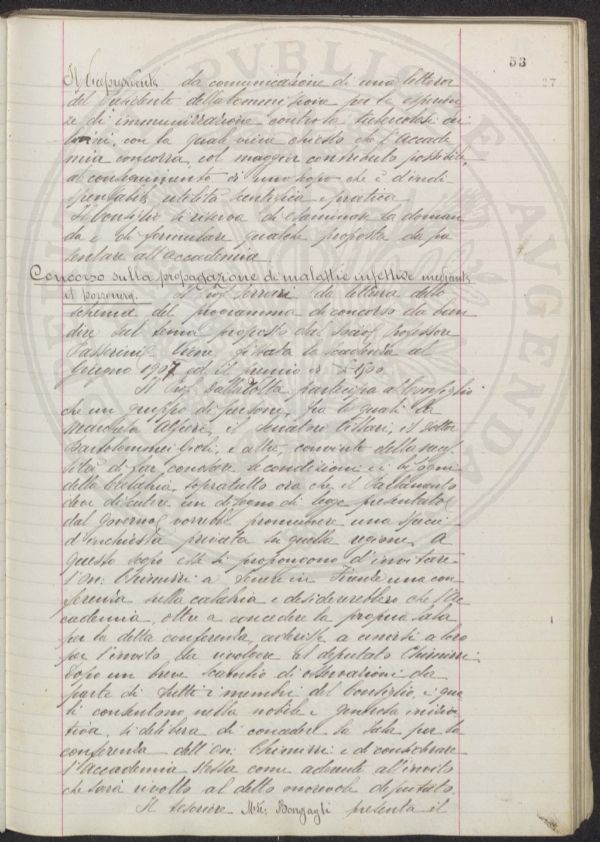 53
27
Il Vicepresidente dà comunicazione di una lettera
del Presidente della Commissione per le esperien
ze di immunizzazione contro la tubercolosi dei
bovini, con la quale viene chiesto che l'Accade
mia concorra, col maggior contributo possibile,
al conseguimento di uno scopo che è d'indi
spensabile utilità scientifica e pratica.
Il Consiglio si riserva di esaminare la doman
da e di formulare qualche proposta da pre
sentare all'Accademia.
Concorso sulla propagazione di malattie infettive mediante
il pozzonero. Il prof. Ferrari dà lettura dello
schema del programma di concorso da ban
dire sul tema proposto dal socio professore
Passerini. Viene fissata la scadenza al
Giugno 1907 ed il premio a £ 500.
Il Prof. Dalla Volta partecipa al Consiglio
che un gruppo di persone, fra le quali la
Marchesa Alfieri, il Senatore Villari, il Dottor
Bartolommei Gioli, e altri, convinte della neces
sità di far conoscere le condizioni e i bisogni
della Calabria, sopratutto ora che il Parlamento
deve discutere un disegno di legge presentato
dal Governo, vorrebbe promuovere una specie
d'inchiesta privata su quella regione. A
questo scopo esse si propongono d'invitare
l'On. Chimirri a tenere in Firenze una con
ferenza sulla Calabria e desidererebbero che l'Ac
cademia, oltre a concedere la propria sala
per la detta conferenza, aderisse a unirsi a loro
per l'invito da rivolgere al deputato Chimirri.
Dopo un breve scambio di osservazioni da
parte di tutti i membri del Consiglio, i qua
li consentono nella nobile e generosa inizia
tiva, si delibera di concedere la sala per la
conferenza dell'On. Chimirri e di considerare
l'Accademia stessa come aderente all'invito
che sarà rivolto al detto onorevole deputato.
Il tesoriere M.se Bargagli presenta il